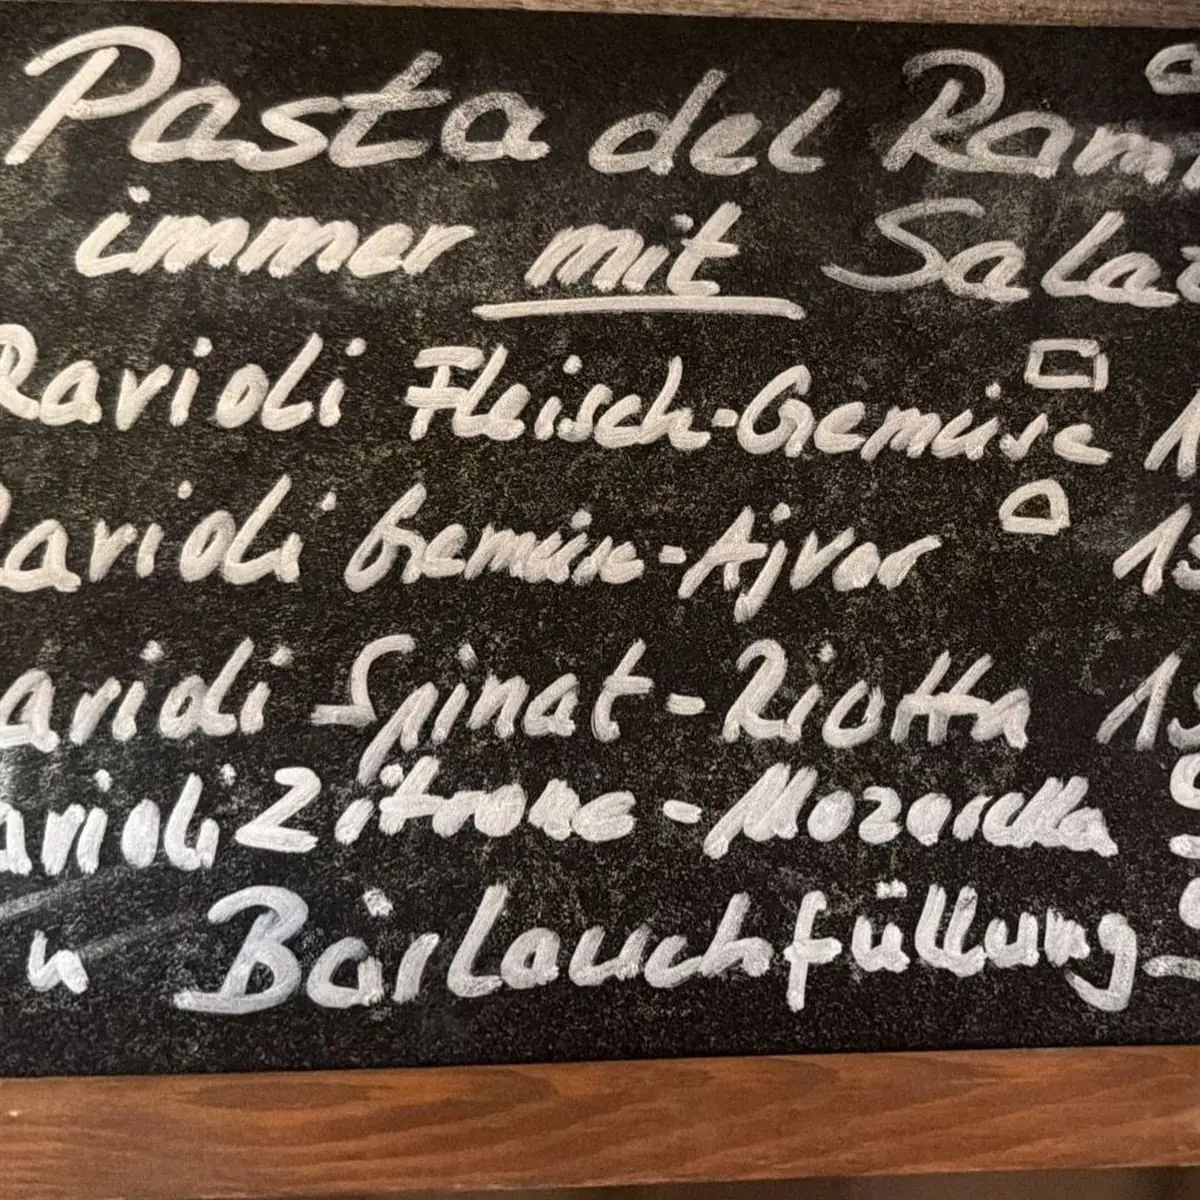 Pasta del Ram
immer mit Salat
Ravioli Fleisch-Gemüse 1
Ravioli Gemüse-Ajvar 15
avioli Spinat-Riotta 15
avioli Zitrone-Mozarella
u Bärlauchfüllung